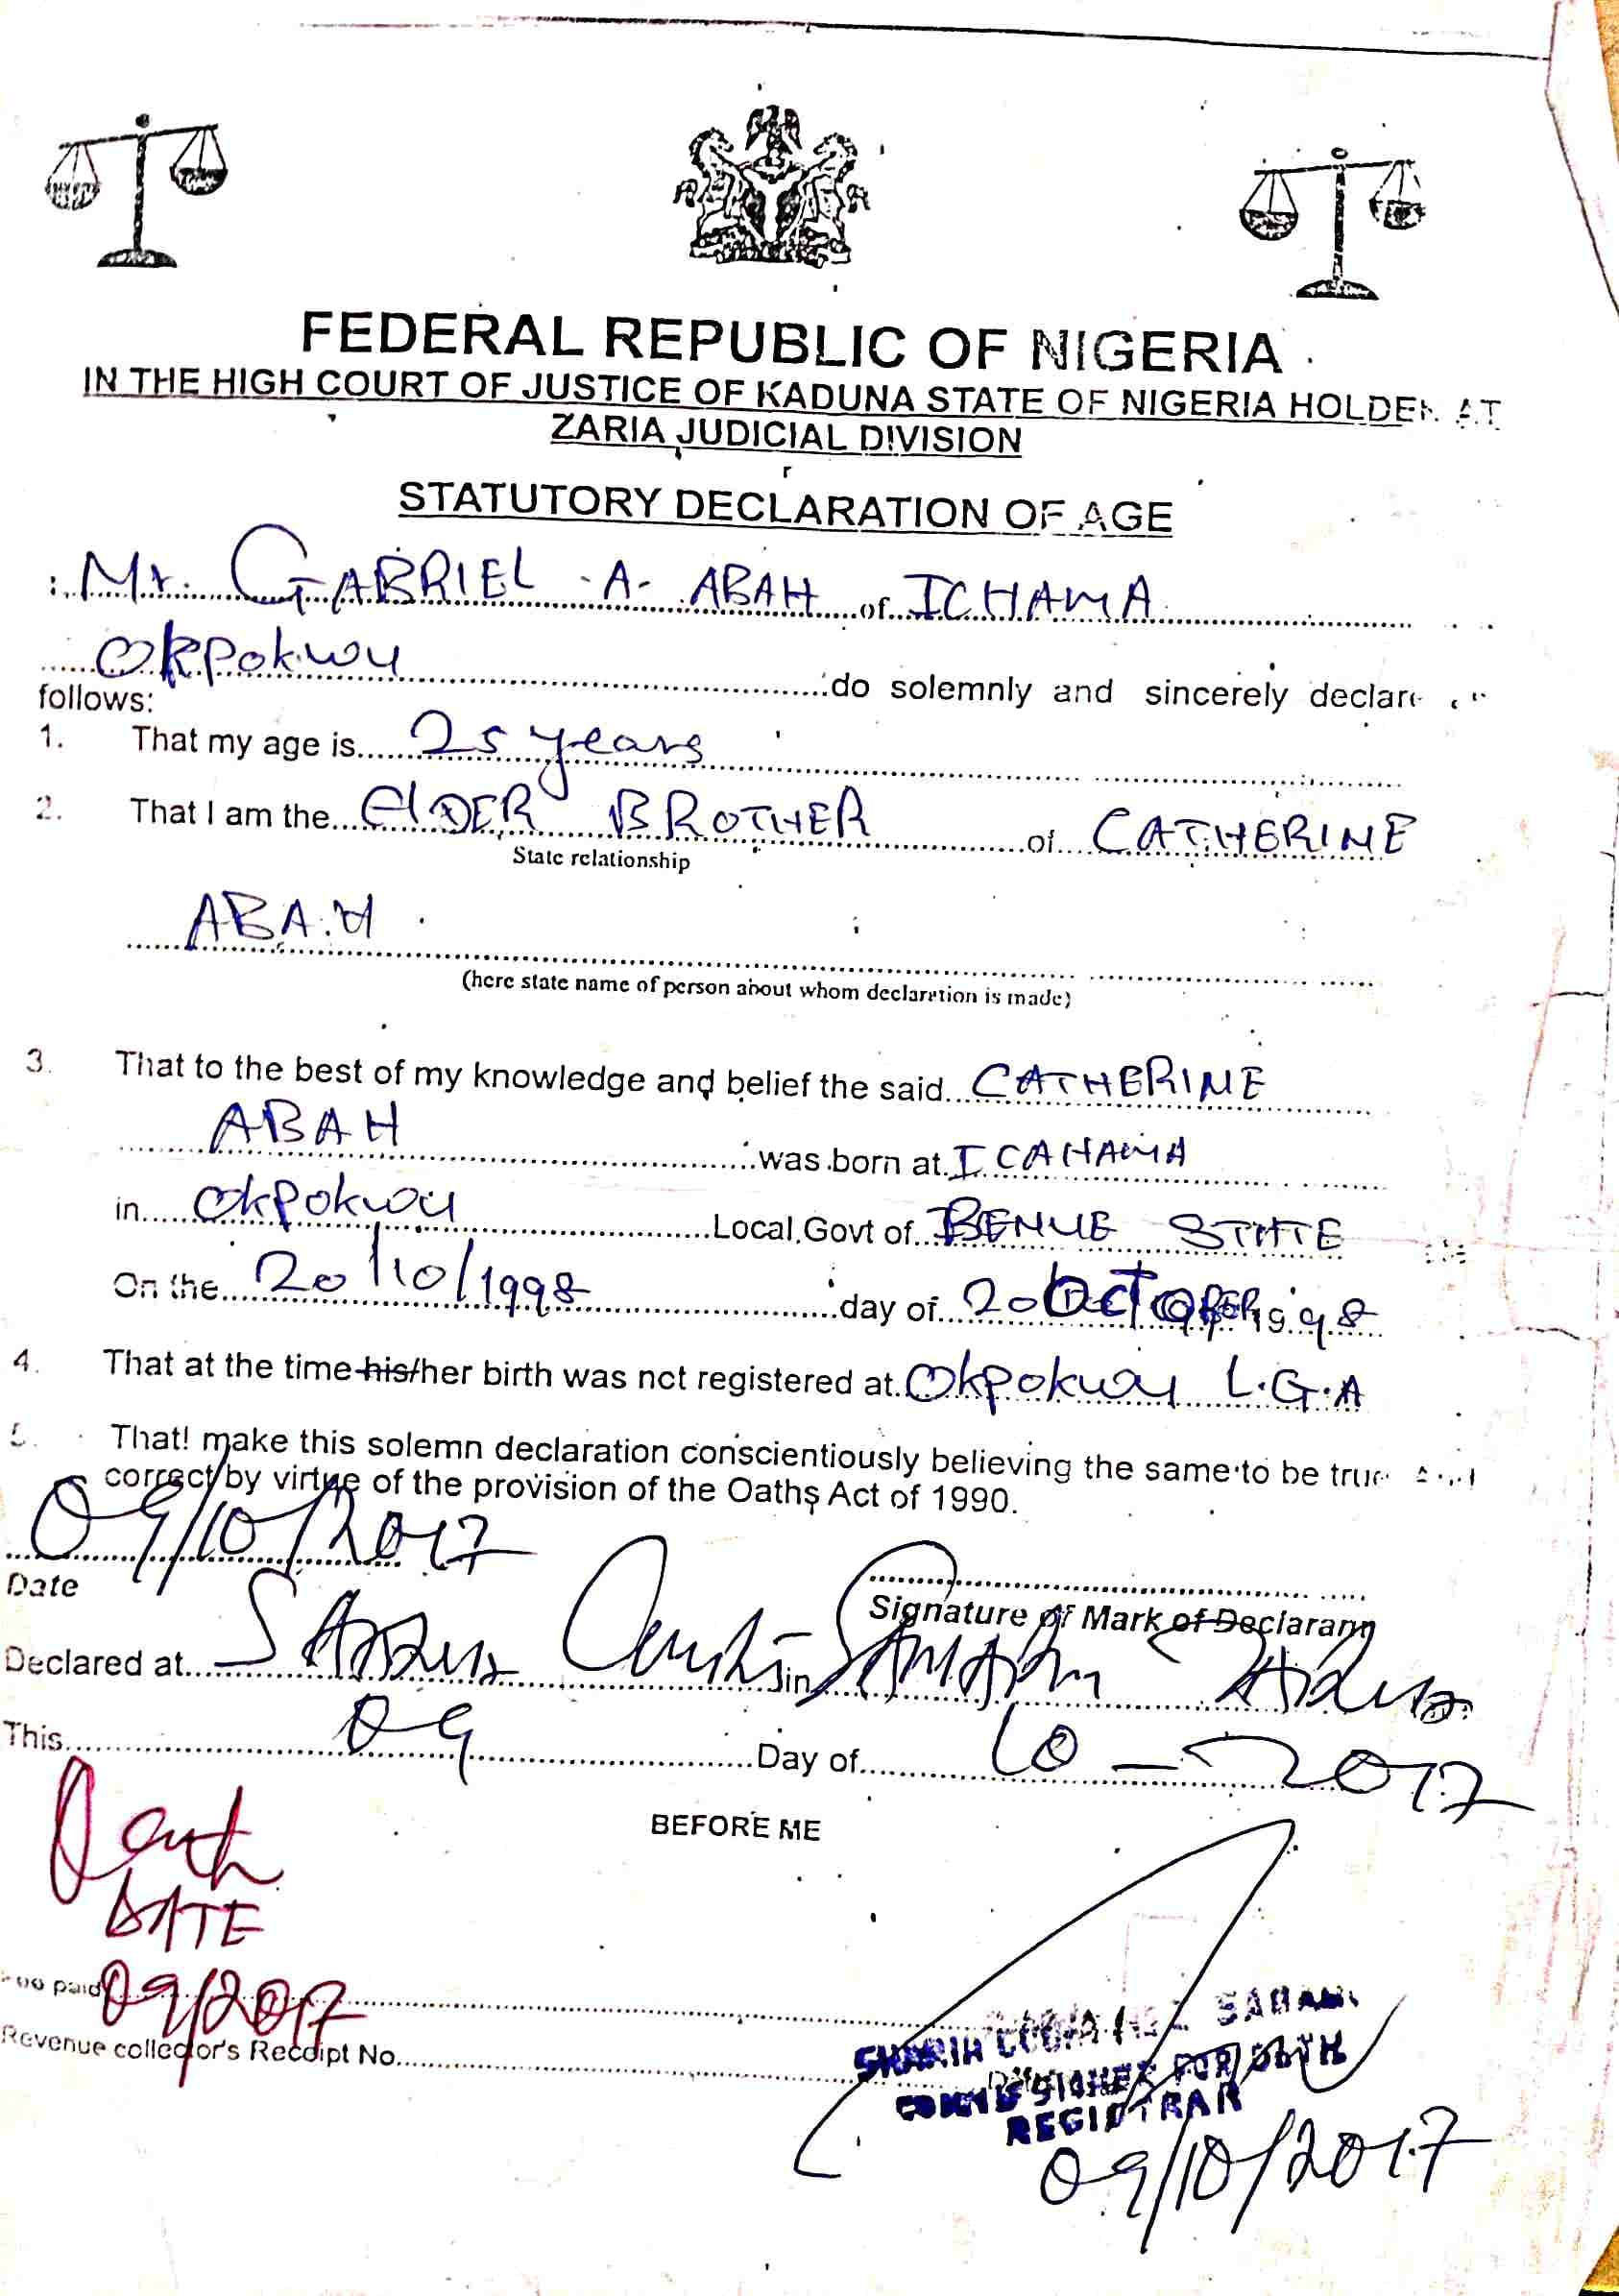 FEDERAL REPUBLIC OF NIGERIA
IN THE HIGH COURT OF JUSTICE OF KADUNA STATE OF NIGERIA HOLDEN AT
ZARIA JUDICIAL DIVISION
STATUTORY DECLARATION OF AGE
Mr. GABRIEL -A- ABAH of ICHAMA
OKPOKWU do solemnly and sincerely declare
follows:
1. That my age is 25 years
2. That I am the ELDER BROTHER of CATHERINE
State relationship
ABAH
(here state name of person about whom declaration is made)
3. That to the best of my knowledge and belief the said CATHERINE
ABAH was born at ICAHAMA
in Okpokwu Local Govt of BENUE STATE
On the 20/10/1998 day of 20 OCTOBER 1998
4. That at the time his/her birth was not registered at Okpokwu L.G.A
5. That I make this solemn declaration conscientiously believing the same to be true and
correct by virtue of the provision of the Oaths Act of 1990.
09/10/2017
Date
Signature of Mark of Declarann
Declared at in
This 09 Day of 10 - 2017
BEFORE ME
DATE
paid 09/2017
Revenue collector's Receipt No.
SHARIA COURT
COMMISSIONER FOR OATH
REGISTRAR
09/10/2017